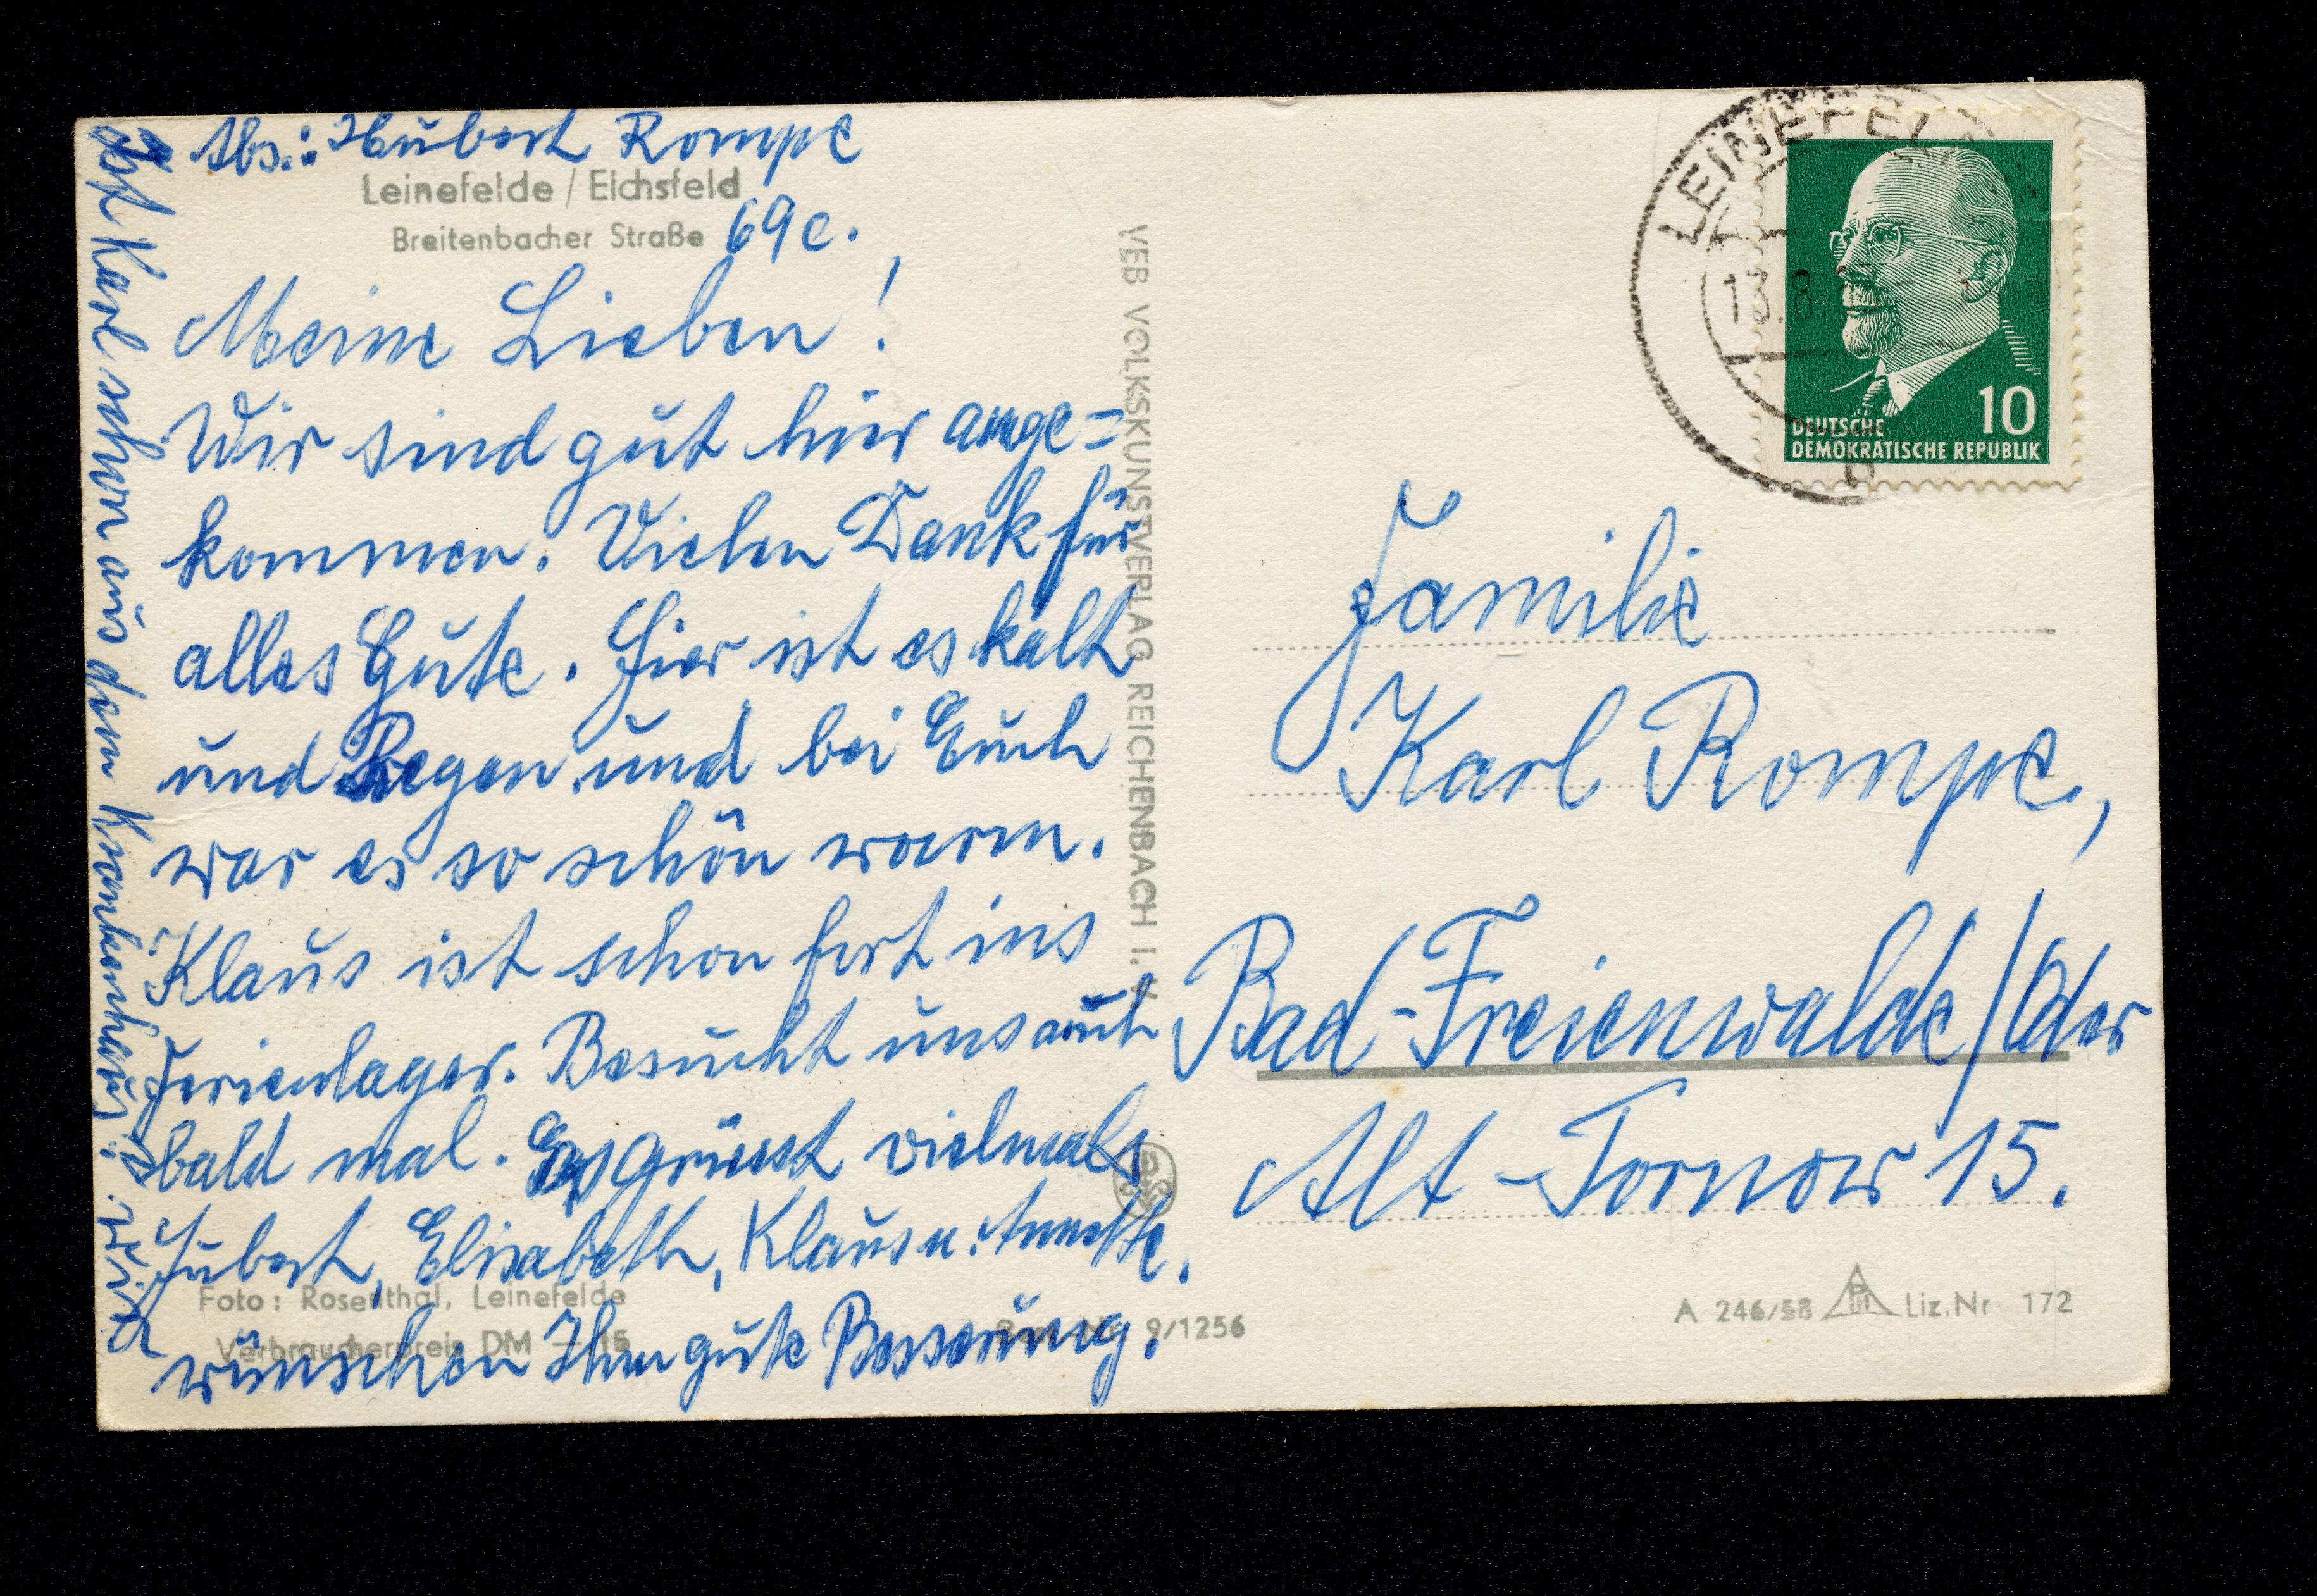 Abs.: Hubert Rompe
Leinefelde / Eichsfeld
Breitenbacher Straße 69c.
Meine Lieben!
Wir sind gut hier ange=
kommen. Vielen Dank für
alles Gute. Hier ist es kalt
und Regen und bei Euch
war es so schön warm.
Klaus ist schon fort ins
Ferienlager. Besucht uns auch
bald mal. Es grüsst vielmals
Hubert, Elisabeth, Klaus u. Annette.
Ist Karl schon aus dem Krankenhaus? Wir
wünschen Ihm gute Besserung.
Foto: Rosenthal, Leinefelde
Verbraucherpreis DM –.15
9/1256
VEB VOLKSKUNSTVERLAG REICHENBACH I. V.
LEINEFELDE
13.8.
b
10
DEUTSCHE
DEMOKRATISCHE REPUBLIK
Familie
Karl Rompe,
Bad-Freienwalde/Oder
Alt-Tornow 15.
A 246/58 Liz.Nr 172